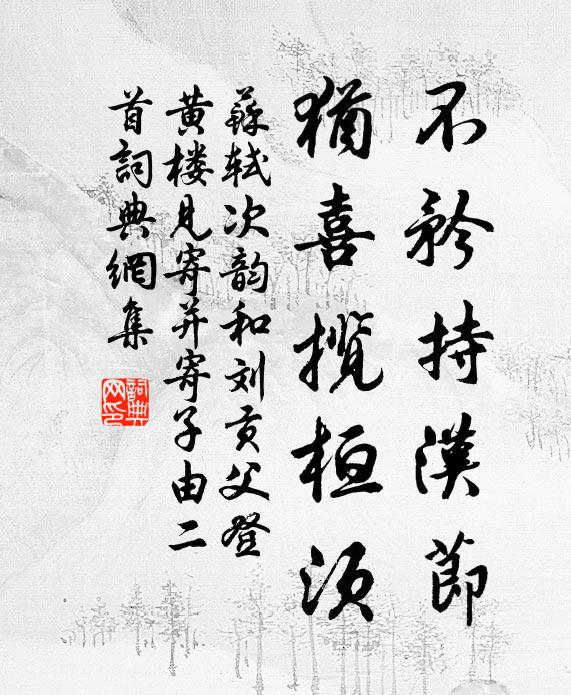 不矜持漢節
猶喜揽桓須
蘇轼次韵和刘贡父登
黄楼見寄并寄子由二
首詞典網集
詞典
网印